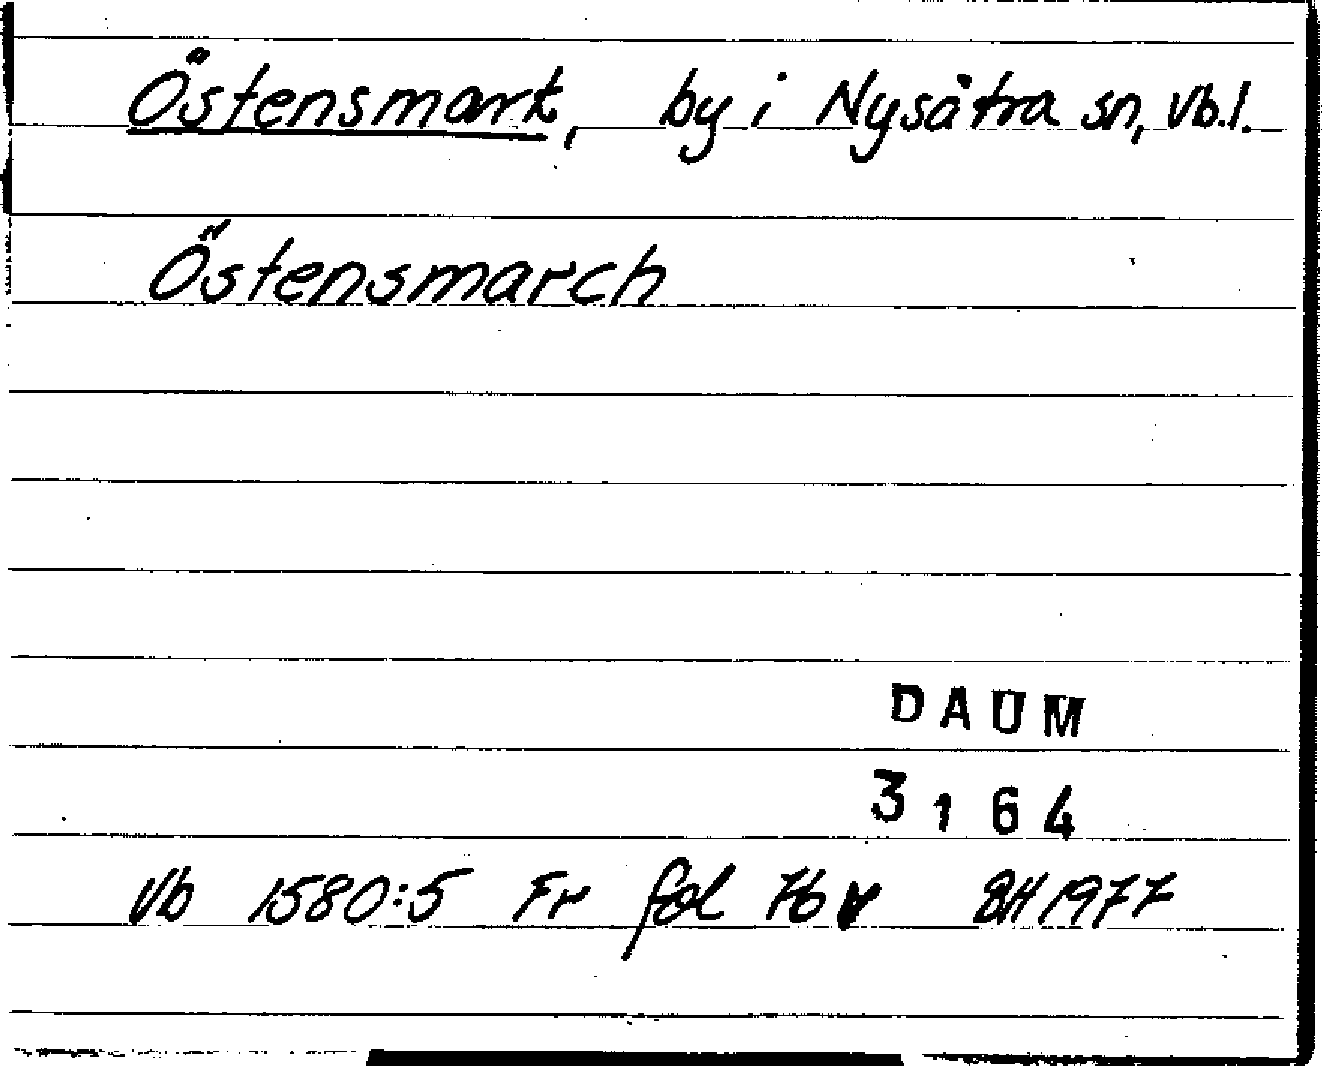 Östensmark, by i Nysätra sn, Vb.l.
Östensmarch
DAUM
3164
Vb 1580:5 Fr fol 76 v BH 1977